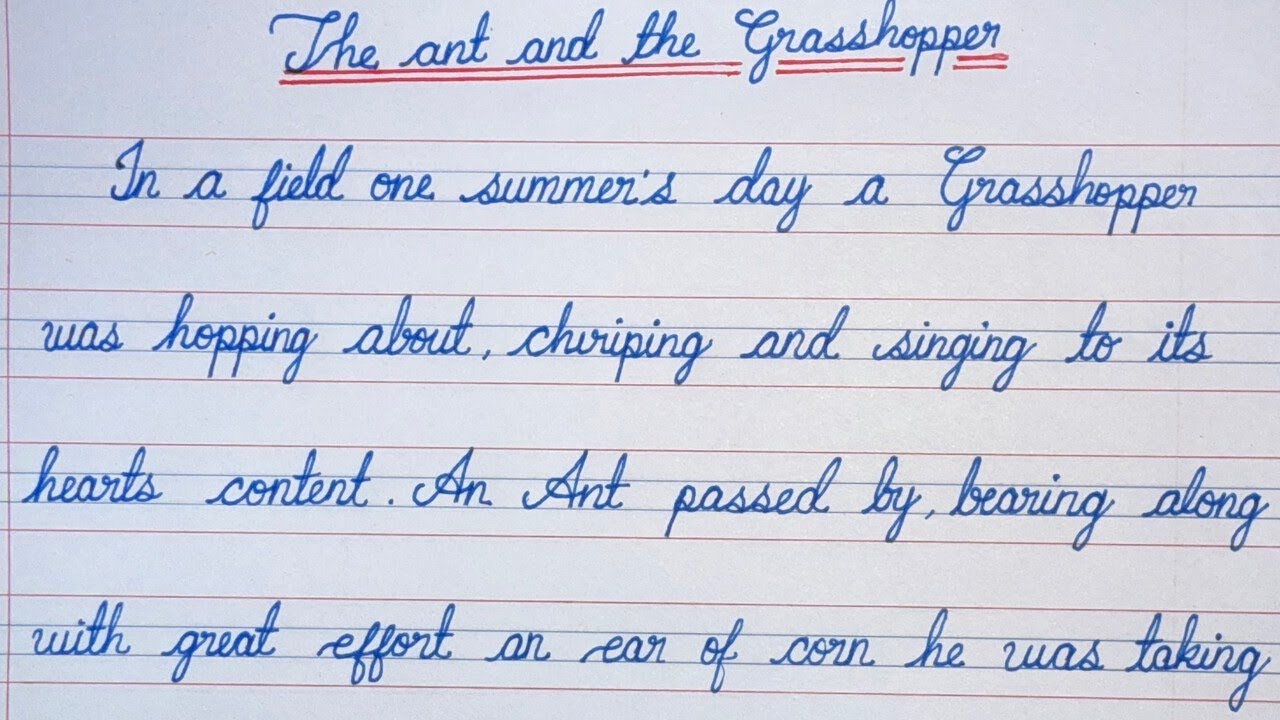 The ant and the Grasshopper
In a field one summer's day a Grasshopper
was hopping about, chiriping and singing to its
hearts content. An Ant passed by, bearing along
with great effort an ear of corn he was taking